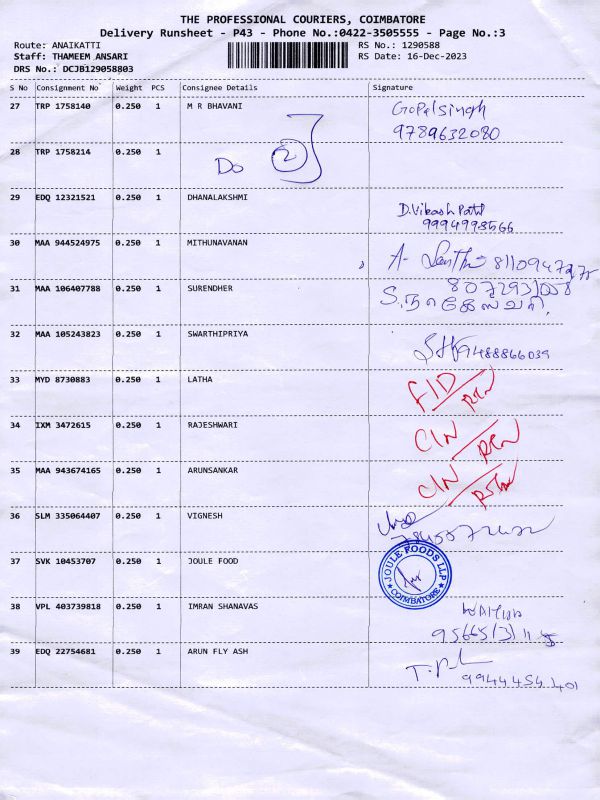 THE PROFESSIONAL COURIERS, COIMBATORE
Delivery Runsheet - P43 - Phone No.:0422-3505555 - Page No.:3
Route: ANAIKATTI RS No.: 1290588
Staff: THAMEEM ANSARI RS Date: 16-Dec-2023
DRS No.: DCJB129058803
S No Consignment No Weight PCS Consignee Details Signature
27 TRP 1758140 0.250 1 M R BHAVANI Gopalsingh
9789632080
28 TRP 1758214 0.250 1 Do 2
29 EDQ 12321521 0.250 1 DHANALAKSHMI D.Vikash Patil
9994993566
30 MAA 944524975 0.250 1 MITHUNAVANAN A-
31 MAA 106407788 0.250 1 SURENDHER
32 MAA 105243823 0.250 1 SWARTHIPRIYA 9488866039
33 MYD 8730883 0.250 1 LATHA
34 IXM 3472615 0.250 1 RAJESHWARI
35 MAA 943674165 0.250 1 ARUNSANKAR
36 SLM 335064407 0.250 1 VIGNESH
37 SVK 10453707 0.250 1 JOULE FOOD JOULE FOODS LLP
COIMBATORE
38 VPL 403739818 0.250 1 IMRAN SHANAVAS
39 EDQ 22754681 0.250 1 ARUN FLY ASH
9944454401